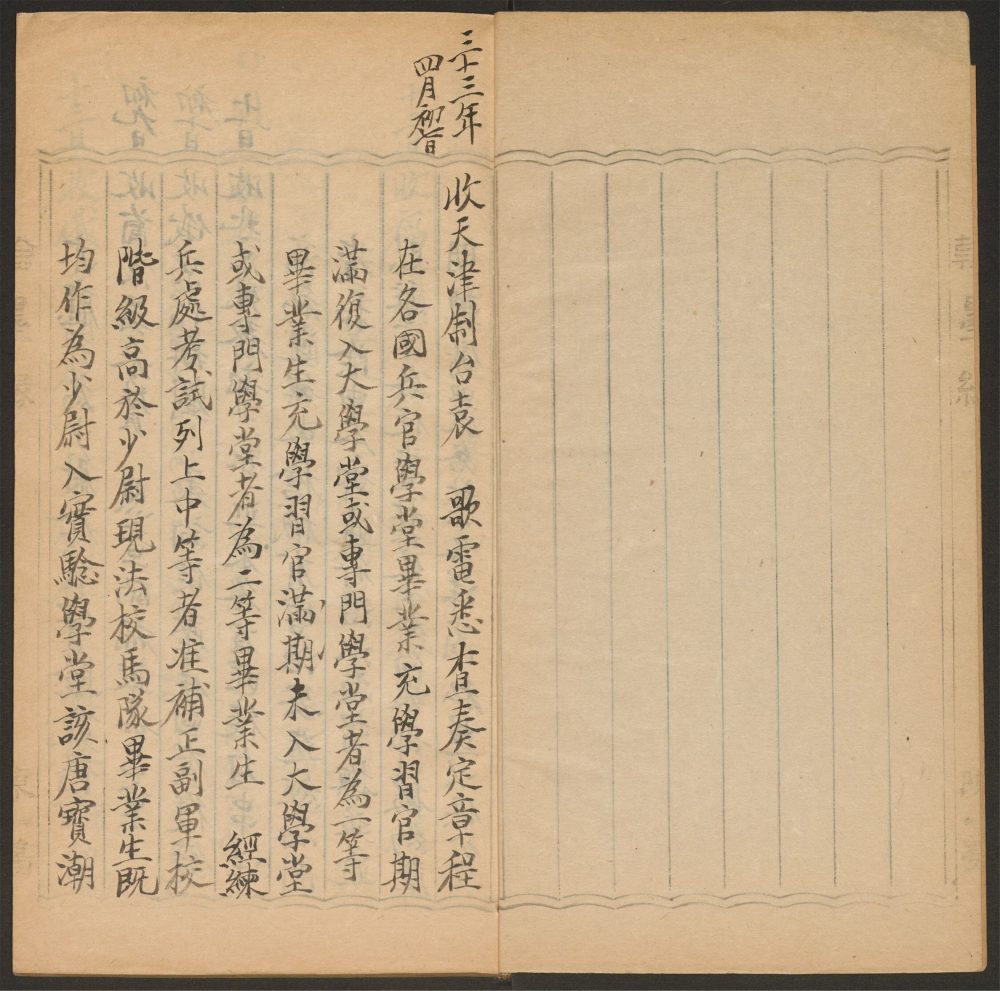 三十三年
四月初音
收天津制台袁　歌電悉查奏定章程
在各國兵官學堂畢業充學習官期
滿復入大學堂或專門學堂者為一等
畢業生充學習官滿期未入大學堂
或專門學堂者為二等畢業生　經練
兵處考試列上中等者准補正副軍校
階級高於少尉現法校馬隊畢業生既
均作為少尉入實驗學堂該唐寶潮